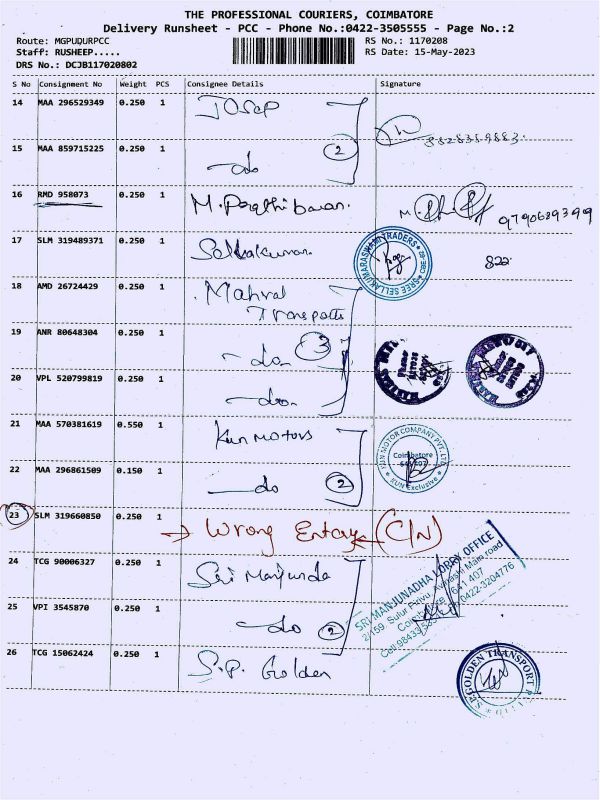 THE PROFESSIONAL COURIERS, COIMBATORE
Delivery Runsheet - PCC - Phone No.:0422-3505555 - Page No.:2
Route: MGPUDURPCC RS No.: 1170208
Staff: RUSHEEP..... RS Date: 15-May-2023
DRS No.: DCJB117020802
S No Consignment No Weight PCS Consignee Details Signature
14 MAA 296529349 0.250 1
15 MAA 859715225 0.250 1 do 2
16 RMD 958073 0.250 1 9790689399
17 SLM 319489371 0.250 1 Sellakumar
SREE SELLAKUMARASWAMI TRADERS
18 AMD 26724429 0.250 1
Transports
19 ANR 80648304 0.250 1 do 3
20 VPL 520799819 0.250 1 do
21 MAA 570381619 0.550 1 Kun Motors
KUN MOTOR COMPANY PVT. LTD
Coimbatore
KUN Exclusive
22 MAA 296861509 0.150 1 do 2
23 SLM 319660850 0.250 1 → Wrong Entry (C/N)
24 TCG 90006327 0.250 1 Sri Manjunda
SRI MANJUNADHA LORRY OFFICE
2/159, Sulur Pirivu, Avinashi Main road
Coimbatore - 641 407
0422-3204776
25 VPI 3545870 0.250 1 do 2
26 TCG 15062424 0.250 1 S.P. Golden
GOLDEN TRANSPORT